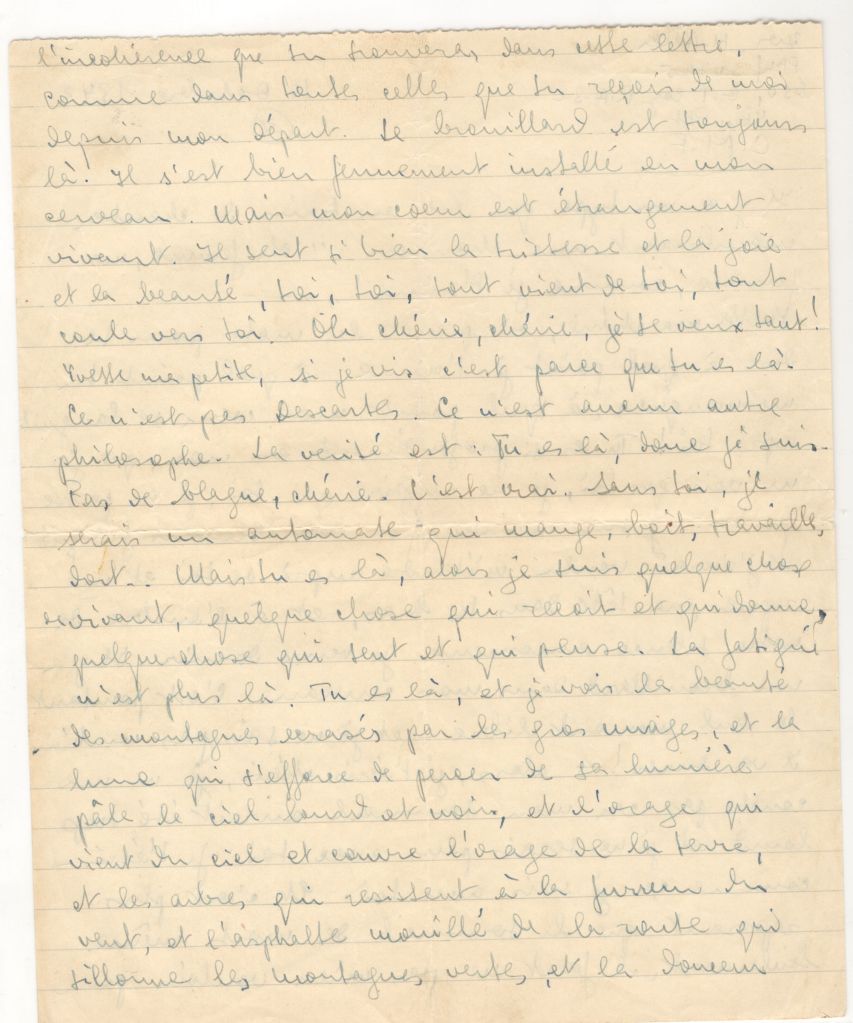 l'incohérence que tu trouveras dans cette lettre,
comme dans toutes celles que tu reçois de moi
depuis mon départ. Le brouillard est toujours
là. Il s'est bien fermement installé en mon
cerveau. Mais mon coeur est étrangement
vivant. Il sent si bien la tristesse et la joie
et la beauté, toi, toi, tout vient de toi, tout
coule vers toi. Oh chérie, chérie, je te veux tant!
Yvette ma petite, si je vis c'est parce que tu es là.
Ce n'est pas Descartes. Ce n'est aucun autre
philosophe. La verité est: Tu es là, donc je suis.
Pas de blague, chérie. C'est vrai. Sans toi, je
serais un automate qui mange, boit, travaille,
dort.. Mais tu es là, alors je suis quelque chose
de vivant, quelque chose qui recoit et qui donne,
quelque chose qui sent et qui pense. La fatigue
n'est plus là. Tu es là, et je vois la beauté
des montagnes ecrasés par les gros nuages, et la
lune qui s'efforce de percer de sa lumière
pâle le ciel lourd et noir, et l'orage qui
vient du ciel et couvre l'orage de la terre,
et les arbres qui resistent à la furreur du
vent, et l'asphalte mouillé de la route qui
sillonne les montagnes vertes, et la douceur